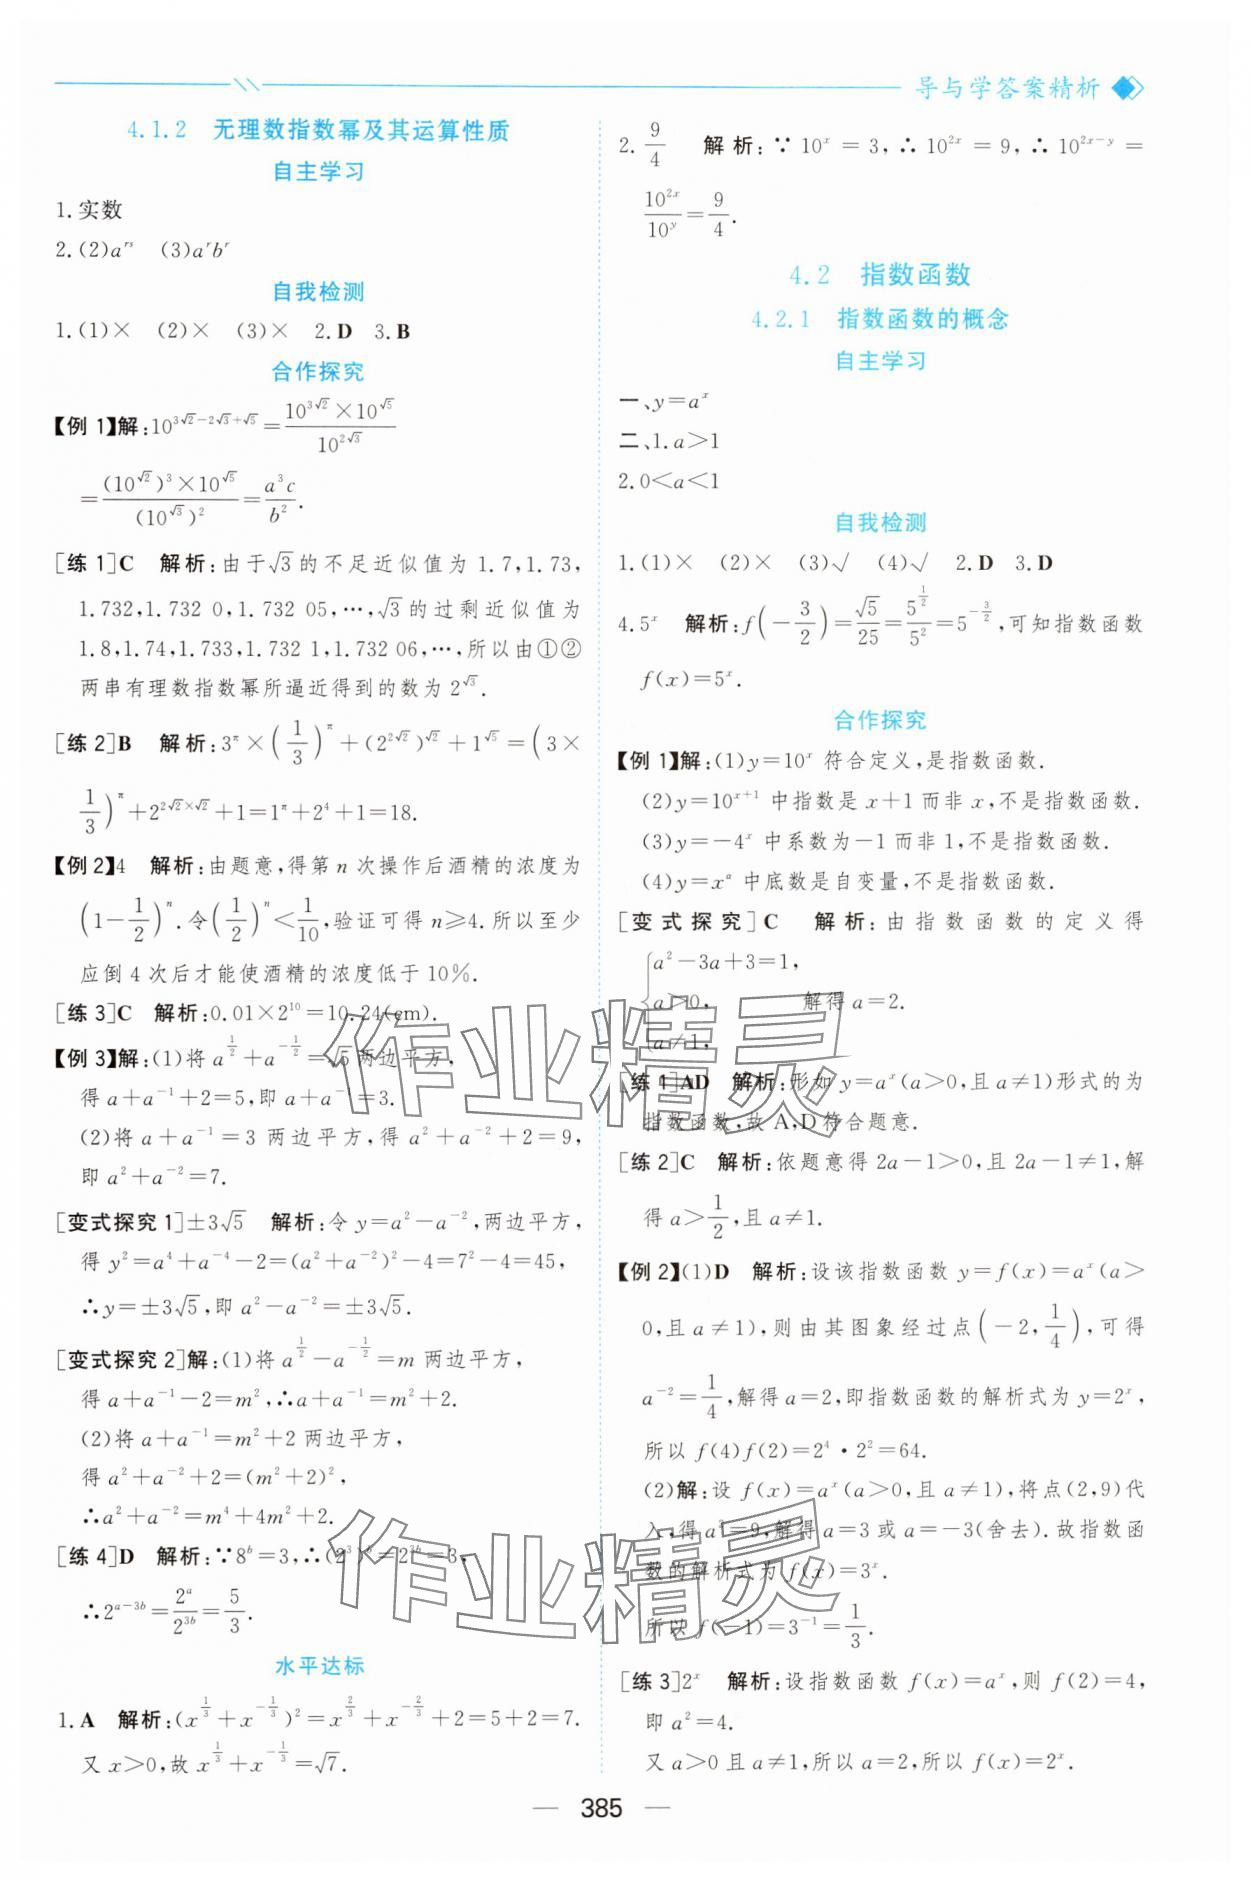 导与学答案精析
4.1.2 无理数指数幂及其运算性质
自主学习
1.实数
2.(2)a^{rs} (3)a^r b^r
自我检测
1.(1)× (2)× (3)× 2.D 3.B
合作探究
【例1】解:10^{3√2-2√3+√5}=\frac{10^{3√2}×10^{√5}}{10^{2√3}}
=\frac{(10^{√2})^3×10^{√5}}{(10^{√3})^2}=\frac{a^3c}{b^2}.
[练1]C 解析:由于√3的不足近似值为1.7,1.73,
1.732,1.732 0,1.732 05,…,√3的过剩近似值为
1.8,1.74,1.733,1.732 1,1.732 06,…,所以由①②
两串有理数指数幂所逼近得到的数为2^{√3}.
[练2]B 解析:3^π×(\frac{1}{3})^π+(2^{2√2})^{√2}+1^{√5}=(3×
\frac{1}{3})^π+2^{2√2×√2}+1=1^π+2^4+1=18.
【例2】4 解析:由题意,得第n次操作后酒精的浓度为
(1-\frac{1}{2})^n.令(\frac{1}{2})^n<\frac{1}{10},验证可得n≥4.所以至少
应倒4次后才能使酒精的浓度低于10%.
[练3]C 解析:0.01×2^{10}=10.24(cm).
【例3】解:(1)将a^{\frac{1}{2}}+a^{-\frac{1}{2}}=√5两边平方,
得a+a^{-1}+2=5,即a+a^{-1}=3.
(2)将a+a^{-1}=3两边平方,得a^2+a^{-2}+2=9,
即a^2+a^{-2}=7.
[变式探究1]±3√5 解析:令y=a^2-a^{-2},两边平方,
得y^2=a^4+a^{-4}-2=(a^2+a^{-2})^2-4=7^2-4=45,
∴y=±3√5,即a^2-a^{-2}=±3√5.
[变式探究2]解:(1)将a^{\frac{1}{2}}-a^{-\frac{1}{2}}=m两边平方,
得a+a^{-1}-2=m^2,∴a+a^{-1}=m^2+2.
(2)将a+a^{-1}=m^2+2两边平方,
得a^2+a^{-2}+2=(m^2+2)^2,
∴a^2+a^{-2}=m^4+4m^2+2.
[练4]D 解析:∵8^b=3,∴(2^3)^b=2^{3b}=3,
∴2^{a-3b}=\frac{2^a}{2^{3b}}=\frac{5}{3}.
水平达标
1.A 解析:(x^{\frac{1}{3}}+x^{-\frac{1}{3}})^2=x^{\frac{2}{3}}+x^{-\frac{2}{3}}+2=5+2=7.
又x>0,故x^{\frac{1}{3}}+x^{-\frac{1}{3}}=√7.
2.\frac{9}{4} 解析:∵10^x=3,∴10^{2x}=9,∴10^{2x-y}=
\frac{10^{2x}}{10^y}=\frac{9}{4}.
4.2 指数函数
4.2.1 指数函数的概念
自主学习
一、y=a^x
二、1.a>1
2.0<a<1
自我检测
1.(1)× (2)× (3)√ (4)√ 2.D 3.D
4.5^x 解析:f(-\frac{3}{2})=\frac{√5}{25}=\frac{5^{\frac{1}{2}}}{5^2}=5^{-\frac{3}{2}},可知指数函数
f(x)=5^x.
合作探究
【例1】解:(1)y=10^x符合定义,是指数函数.
(2)y=10^{x+1}中指数是x+1而非x,不是指数函数.
(3)y=-4^x中系数为-1而非1,不是指数函数.
(4)y=x^α中底数是自变量,不是指数函数.
[变式探究]C 解析:由指数函数的定义得
{a^2-3a+3=1,
a>0, 解得a=2.
a≠1,
[练1]AD 解析:形如y=a^x(a>0,且a≠1)形式的为
指数函数,故A,D符合题意.
[练2]C 解析:依题意得2a-1>0,且2a-1≠1,解
得a>\frac{1}{2},且a≠1.
【例2】(1)D 解析:设该指数函数y=f(x)=a^x(a>
0,且a≠1),则由其图象经过点(-2,\frac{1}{4}),可得
a^{-2}=\frac{1}{4},解得a=2,即指数函数的解析式为y=2^x,
所以f(4)f(2)=2^4·2^2=64.
(2)解:设f(x)=a^x(a>0,且a≠1),将点(2,9)代
入,得a^2=9,解得a=3或a=-3(舍去).故指数函
数的解析式为f(x)=3^x.
所以f(-1)=3^{-1}=\frac{1}{3}.
[练3]2^x 解析:设指数函数f(x)=a^x,则f(2)=4,
即a^2=4.
又a>0且a≠1,所以a=2,所以f(x)=2^x.
— 385 —
作业精灵
作业精灵